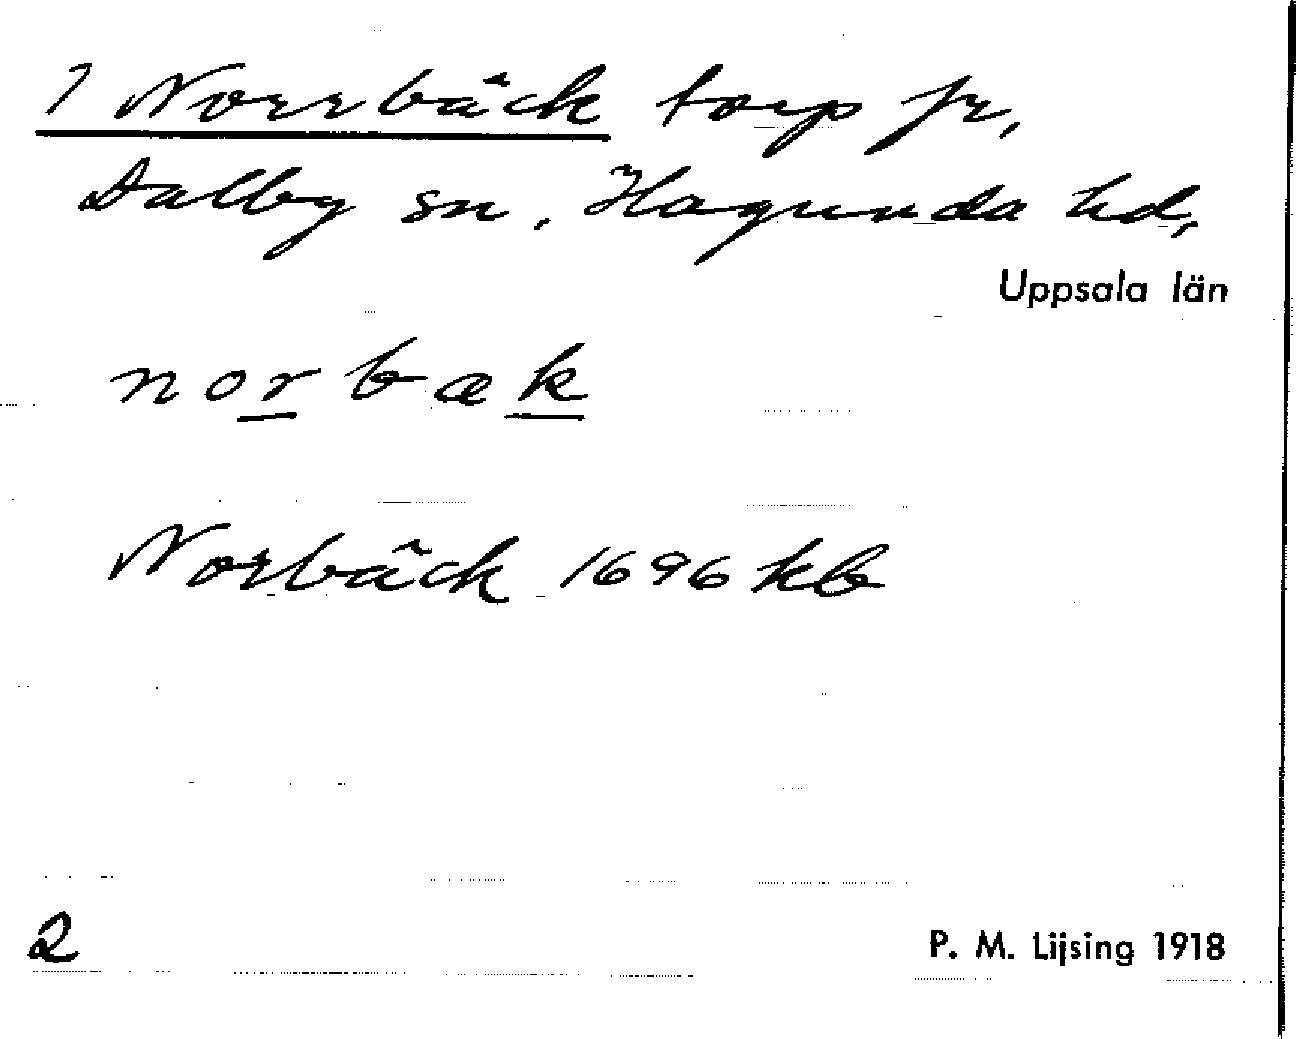 1 Norrbäck torp fr,
Dalby sn, Hagunda hd,
Uppsala län
norbæk
Norbäck 1696 kb
2
P. M. Lijsing 1918